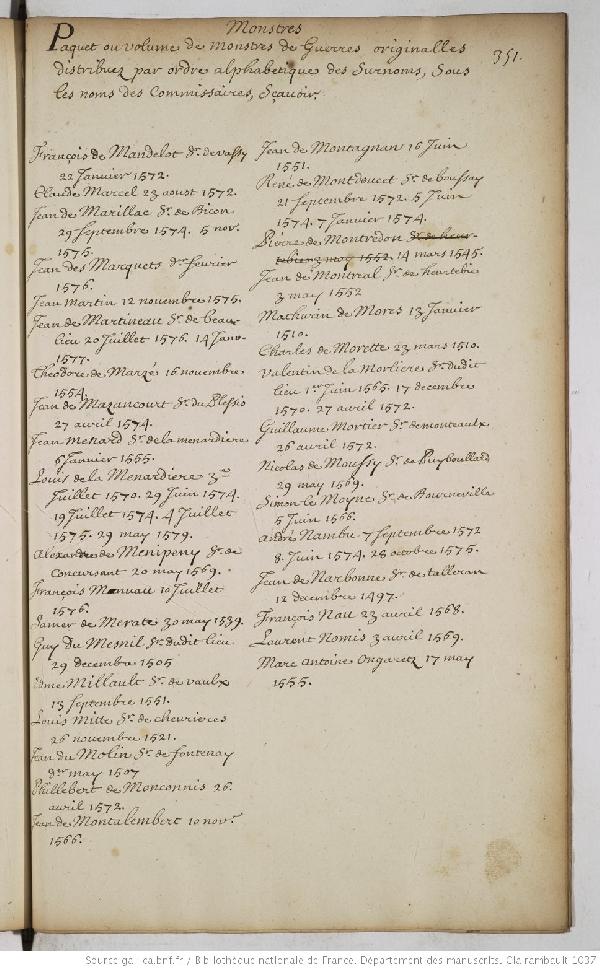 Monstres
351.
Paquet ou volume de monstres de Guerres originalles
distribuez par ordre alphabetique des Surnoms, Sous
les noms des Commissaires, Sçauoir.
François de Mandelot Sr. de vassy
22 Januier 1572.
Claude Marcel 23 aoust 1572.
Jean de Marillac Sr. de Bicon
29 Septembre 1574. 5 nov.
1575.
Jean des Marquets dr. feurier
1576.
Jean Martin 12 nouembre 1575.
Jean de Martineau Sr. de beau
lieu 20 Juillet 1576. 14 Janv.
1577.
Theodore de Marzé 16 nouembre
1554.
Jean de Mazancourt Sr. du Plessis
27 auril 1574.
Jean Menard Sr. de la menardiere
6 Januier 1555.
Louis de la Menardiere 3e
Juillet 1570. 29 Juin 1574.
19 Juillet 1574. 4 Juillet
1575. 29 may 1579.
Alexandre de Menipeny Sr. de
Concursant 20 may 1569.
François 10 Juillet
1576.
de Merate 30 may 1539.
Guy du Mesnil Sr. dudit lieu
29 decembre 1505
Edme Millault Sr. de vaulx
13 Septembre 1551.
Louis Mitte Sr. de cheurieres
26 nouembre 1521.
Jean du Molin Sr. de fontenay
dr. may 1507
Phillebert de Monconnis 26.
auril 1572.
Jean de Montalembert 10 nov.r
1566.
Jean de Montagnan 16 Juin
1551.
René de Montdoucet Sr. de boussay
21 Septembre 1572. 5 Juin
1574. 7 Januier 1574.
Pierre de Montredon
3 may 1552. 14 mars 1545.
Jean de Montral Sr. de heurtebie
3 may 1552
Mathurin de Mores 13 Januier
1510.
Charles de Morette 23 mars 1510.
Valentin de la Morliere Sr. dudit
lieu 1er Juin 1565. 17 decembre
1570. 27 auril 1572.
Guillaume Mortier Sr. de monteaulx
26 auril 1572.
Nicolas de Moussy Sr. de Puyboullard
29 may 1569.
Simon le Moyne Sr. de Bourneville
5 Juin 1566.
André Nambu 7 Septembre 1572
8. Juin 1574. 28 octobre 1575.
Jean de Narbonne Sr. de talleran
12 decembre 1497.
François Nau 23 auril 1568.
Laurent Nomis 3 auril 1569.
Marc antoine Ongaretz 17 may
1555.
Source gallica.bnf.fr / Bibliothèque nationale de France. Département des manuscrits. Clairambault 1037